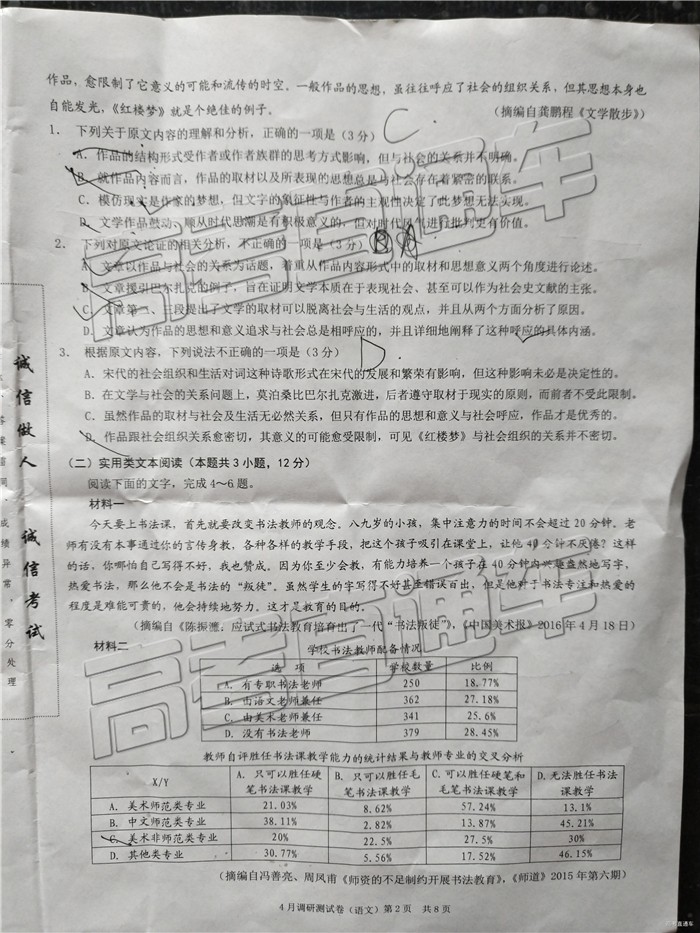 作品，愈限制了它意义的可能和流传的时空。一般作品的思想，虽往往呼应了社会的组织关系，但其思想本身也
自能发光，《红楼梦》就是个绝佳的例子。
（摘编自龚鹏程《文学散步》）
1． 下列关于原文内容的理解和分析，正确的一项是（3分） C
A．作品的结构形式受作者或作者族群的思考方式影响，但与社会的关系并不明确。
B．就作品内容而言，作品的取材以及所表现的思想总是与社会存在着紧密的联系。
C．模仿现实是作家的梦想，但文字的象征性与作者的主观性决定了此梦想无法实现。
D．文学作品鼓动、顺从时代思潮是有积极意义的，但对时代风气进行批判更有价值。
2． 下列对原文论证的相关分析，不正确的一项是（3分）
A．文章以作品与社会的关系为话题，着重从作品内容形式中的取材和思想意义两个角度进行论述。
B．文章援引巴尔扎克的例子，旨在证明文学本质在于表现社会、甚至可以作为社会史文献的主张。
C．文章第二、三段提出了文学的取材可以脱离社会与生活的观点，并且从两个方面分析了原因。
D．文章认为作品的思想和意义追求与社会总是相呼应的，并且详细地阐释了这种呼应的具体内涵。
3． 根据原文内容，下列说法不正确的一项是（3分） D
A．宋代的社会组织和生活对词这种诗歌形式在宋代的发展和繁荣有影响，但这种影响未必是决定性的。
B．在文学与社会的关系问题上，莫泊桑比巴尔扎克激进，后者遵守取材于现实的原则，而前者不受此限制。
C．虽然作品的取材与社会及生活无必然关系，但只有作品的思想和意义与社会呼应，作品才是优秀的。
D．作品跟社会组织关系愈密切，其意义的可能愈受限制，可见《红楼梦》与社会组织的关系并不密切。
（二）实用类文本阅读（本题共3小题，12分）
阅读下面的文字，完成4～6题。
材料一
今天要上书法课，首先就要改变书法教师的观念。八九岁的小孩，集中注意力的时间不会超过20分钟。老
师有没有本事通过你的言传身教，各种各样的教学手段，把这个孩子吸引在课堂上，让他40分钟不厌倦？这样
的话，你哪怕自己写得不好，我也赞成。因为你至少会教，有能力培养一个孩子在40分钟内兴趣盎然地写字，
热爱书法，那么他不会是书法的“叛徒”。虽然学生的字写得不好甚至错误百出，但是他对于书法专注和热爱的
程度是难能可贵的，他会持续地努力。这才是教育的目的。
（摘编自《陈振濂：应试式书法教育培育出了一代“书法叛徒”》，《中国美术报》2016年4月18日）
材料二
学校书法教师配备情况
选 项 学校数量 比例
A．有专职书法老师 250 18.77%
B．由语文老师兼任 362 27.18%
C．由美术老师兼任 341 25.6%
D．没有书法老师 379 28.45%
教师自评胜任书法课教学能力的统计结果与教师专业的交叉分析
X/Y A．只可以胜任硬笔书法课教学 B．只可以胜任毛笔书法课教学 C．可以胜任硬笔和毛笔书法课教学 D．无法胜任书法课教学
A．美术师范类专业 21.03% 8.62% 57.24% 13.1%
B．中文师范类专业 38.11% 2.82% 13.87% 45.21%
C．美术非师范类专业 20% 22.5% 27.5% 30%
D．其他类专业 30.77% 5.56% 17.52% 46.15%
（摘编自冯善亮、周凤甫《师资的不足制约开展书法教育》，《师道》2015年第六期）
4月调研测试卷（语文）第2页 共8页
诚信做人 诚信考试
成绩异常，零分处理
高考直通车
高考直通车